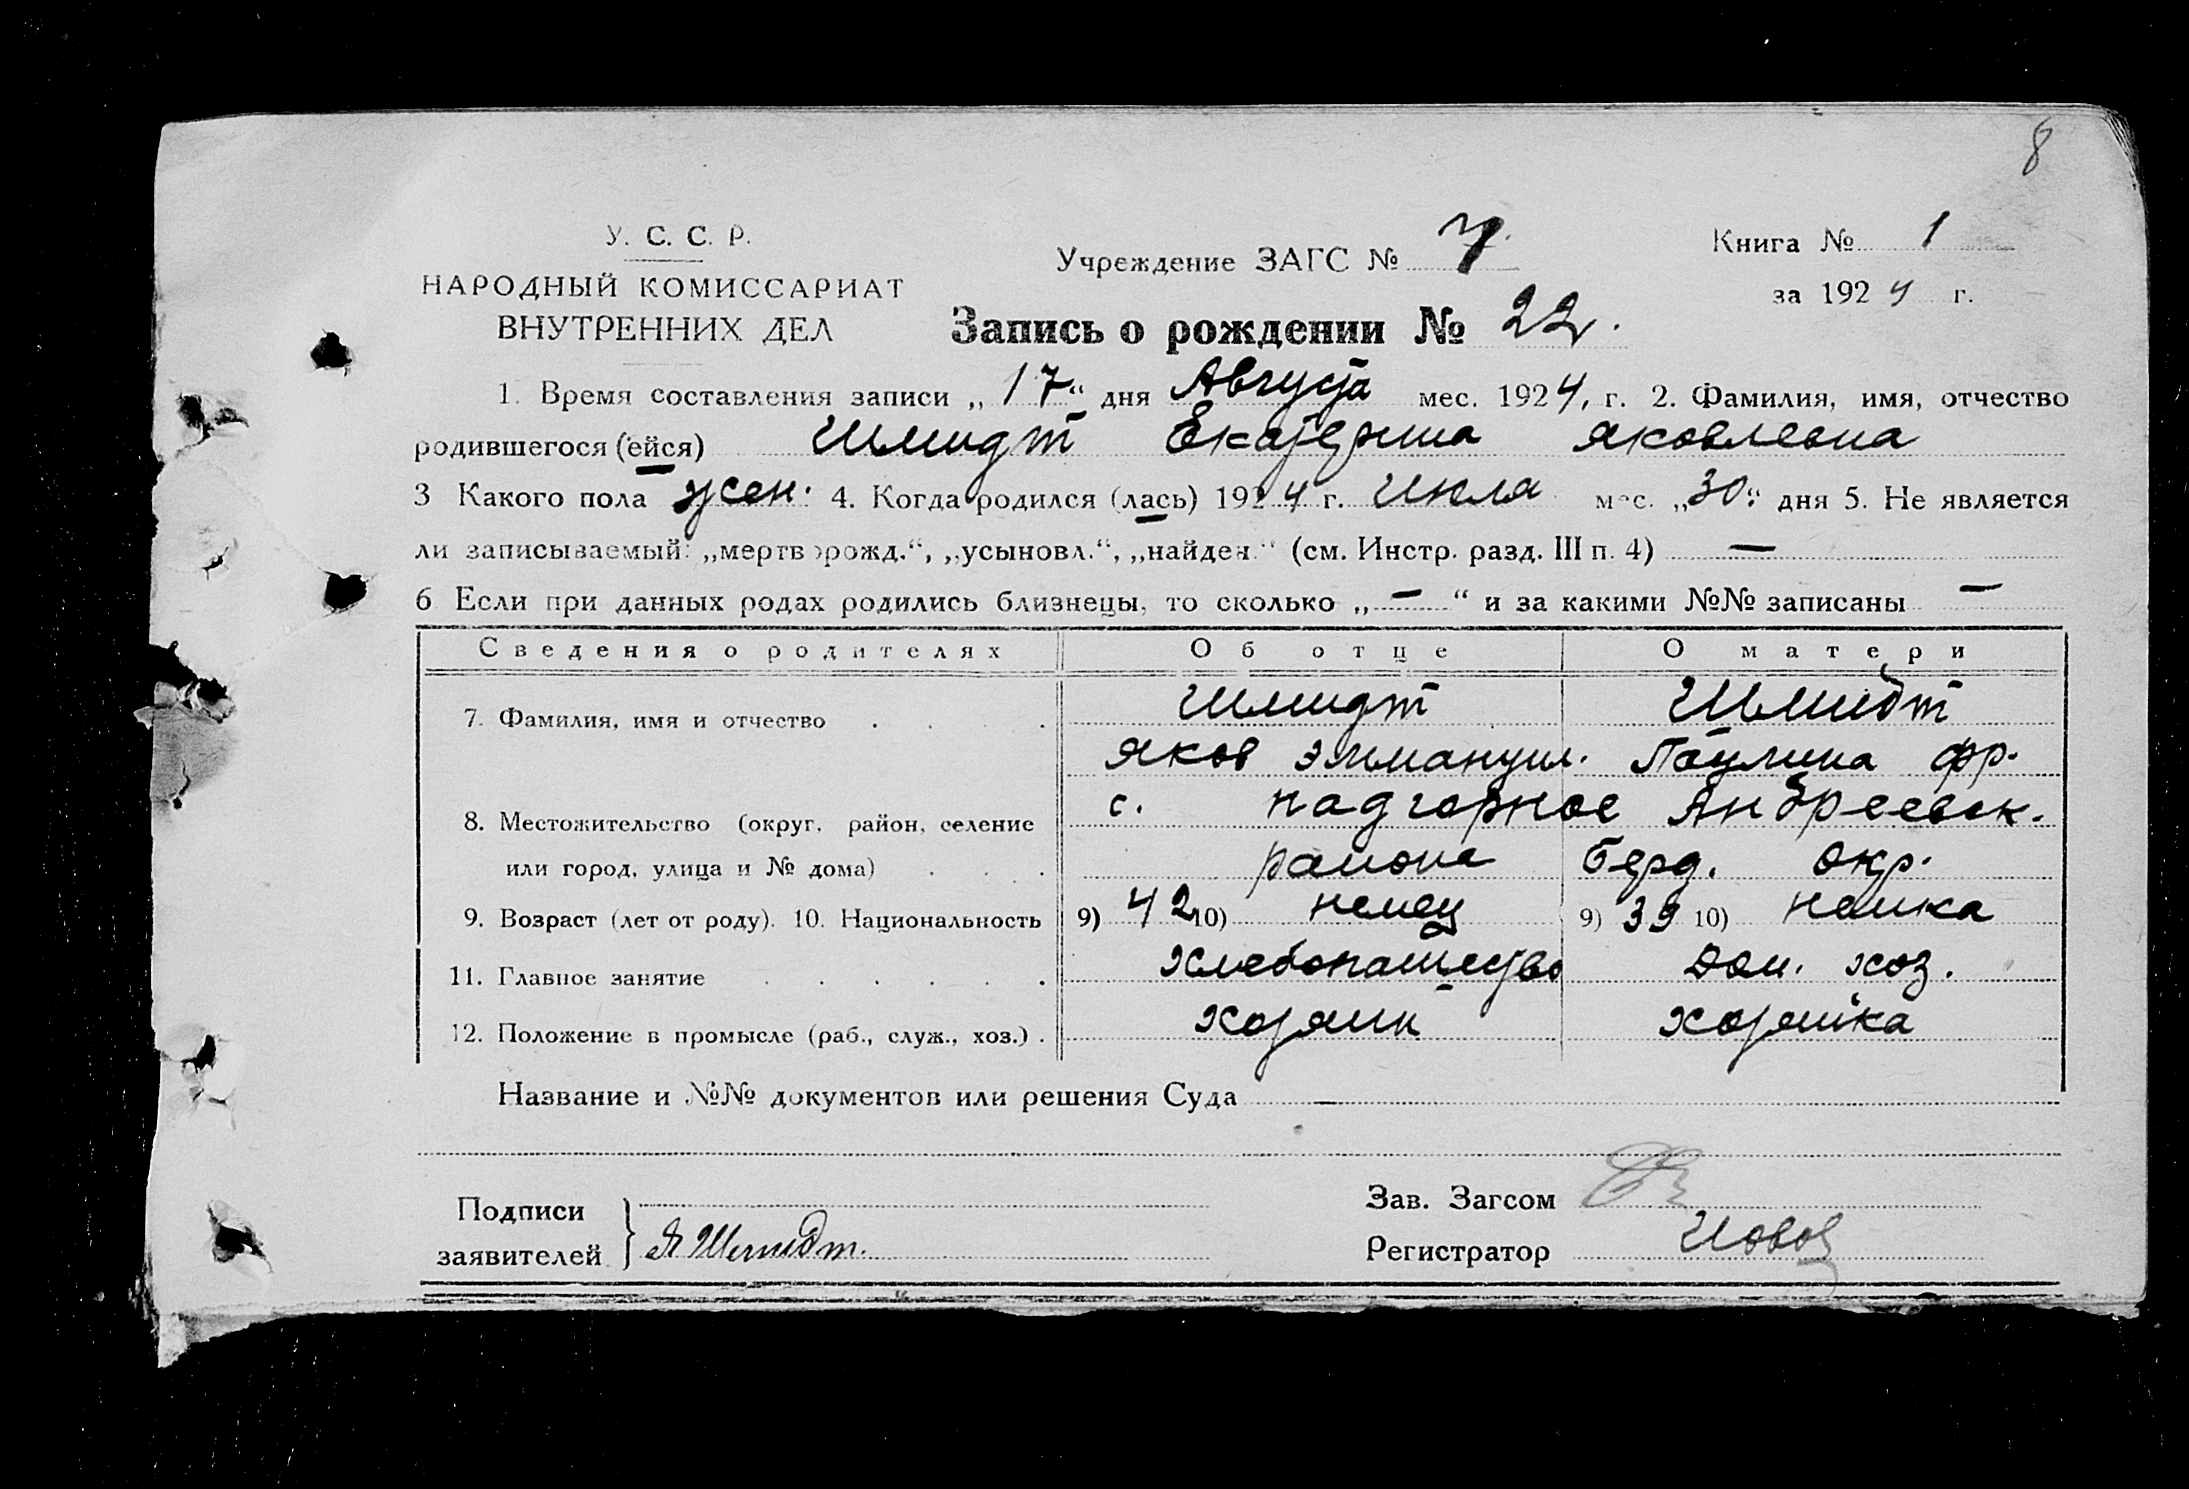 8
У. С. С. Р.
НАРОДНЫЙ КОМИССАРИАТ
ВНУТРЕННИХ ДЕЛ
Учреждение ЗАГС № 7.
Книга № 1
за 1924 г.
Запись о рождении № 22.
1. Время составления записи „17“ дня Августа мес. 1924, г. 2. Фамилия, имя, отчество
родившегося (ейся) Шмидт Екатерина Яковлевна
3 Какого пола жен. 4. Когда родился (лась) 1924 г. Июля мес. „30“ дня 5. Не является
ли записываемый: „мертворожд.“, „усыновл.“, „найден.“ (см. Инстр. разд. III п. 4) —
6 Если при данных родах родились близнецы, то сколько „—“ и за какими №№ записаны —
Сведения о родителях Об отце О матери
7. Фамилия, имя и отчество . . . . Шмидт Шмидт
Яков Эммануил. Паулина Фр.
8. Местожительство (округ, район, селение с. Надгорное Андреевск.
или город, улица и № дома) . . . . района Берд. окр.
9. Возраст (лет от роду). 10. Национальность 9) 42 10) немец 9) 39 10) немка
11. Главное занятие . . . . . . Хлебопашество Дом. хоз.
12. Положение в промысле (раб., служ., хоз.) . хозяин хозяйка
Название и №№ документов или решения Суда —
Подписи
заявителей } Я Шмидт.
Зав. Загсом
Регистратор